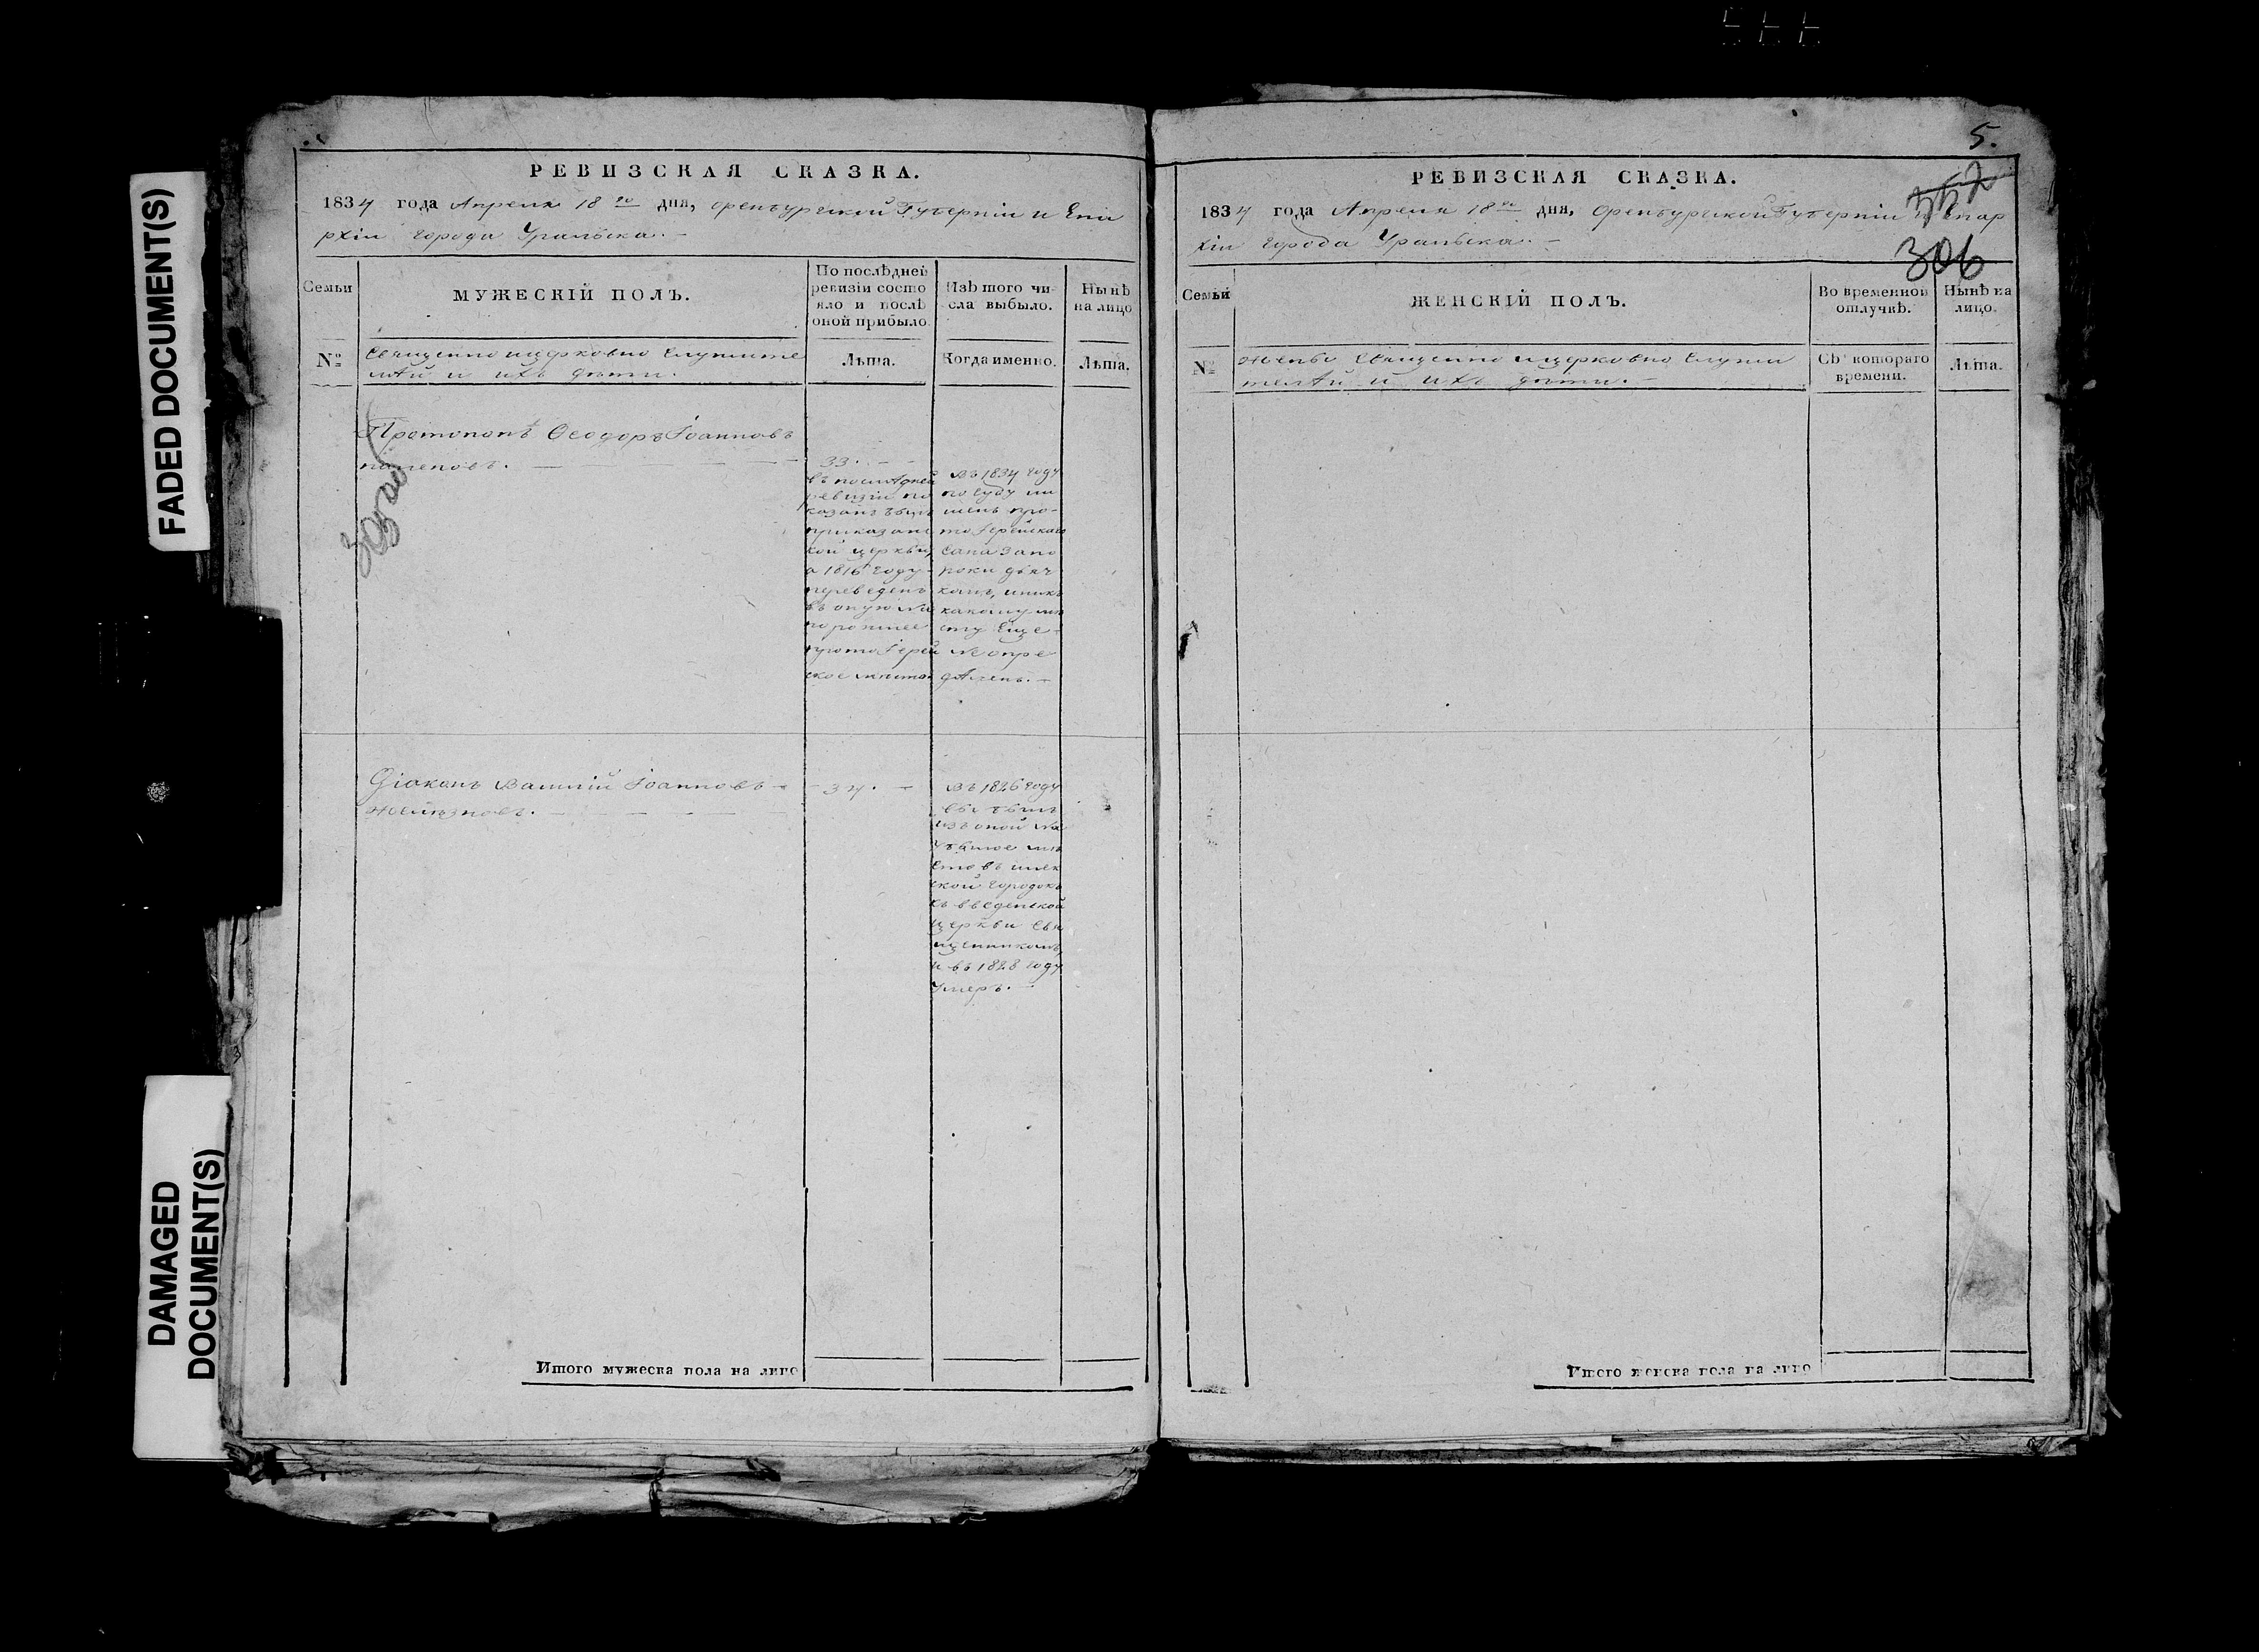 FADED DOCUMENT(S)
DAMAGED
DOCUMENT(S)
РЕВИЗСКАЯ СКАЗКА.
1834 года Апреля 18го дня, Оренбургской Губернiи и Епа
рхiи города Уральска. –
Семьи
МУЖЕСКIЙ ПОЛЪ.
По послѣдней
ревизiи состо
яло и послѣ
оной прибыло.
Изъ того чи-
сла выбыло.
Нынѣ
на лицо
№
Священно и церковно служите
лѣй и ихъ дѣти.
Лѣта.
Когда именно.
Лѣта.
Протопопъ Ѳеодоръ Iоанновъ
33.
въ послѣдней
ревизiи по
казанъ былъ
кой церкви,
а 1816 году
переведенъ
въ оную на
порожнее
протоiерей
ское мѣсто.
въ 1834 году
по суду ли
шенъ про-
тоiерейскаго
сана за по
роки дьяч
комъ, и никъ
какому мѣ
сту еще
не опре
дѣленъ. –
Дiаконъ Василiй Iоанновъ
34.
въ 1826 году
выбылъ
изъ оной на
мѣ
сто въ илек
кой городокъ
къ введенской
церкви свя
щенникомъ,
и въ 1828 году
умеръ. –
Итого мужеска пола на лицо
5.
352
306
РЕВИЗСКАЯ СКАЗКА.
1834 года Апреля 18го дня, Оренбургской Губернiи и Епар
хiи города Уральска. –
Семьи
ЖЕНСКIЙ ПОЛЪ.
Во временной
отлучкѣ.
Нынѣ на
лицо.
№
Жены священно и церковно служи
телѣй и ихъ дѣти. –
Съ котораго
времени.
Лѣта.
Итого женска пола на лицо